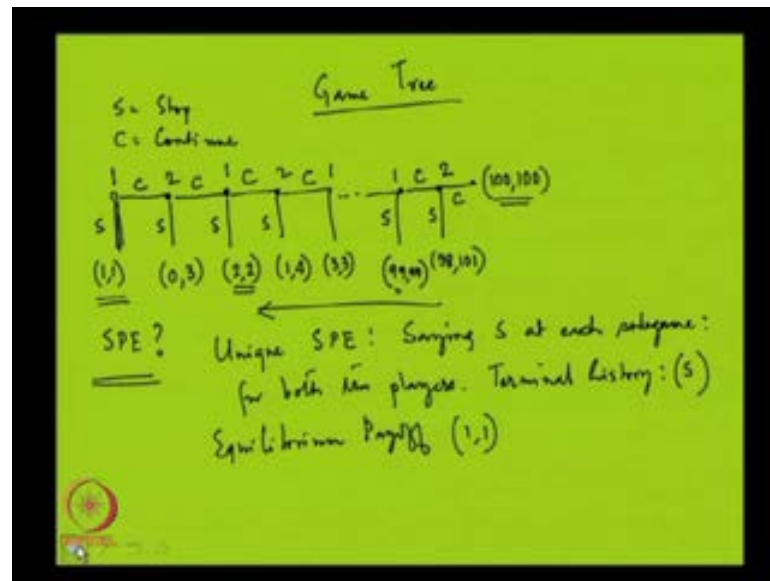 Game Tree
S = Stop
C = Continue
1 C 2 C 1 C 2 C 1 ... 1 C 2 (100,100)
S S S S S S C
(1,1) (0,3) (2,2) (1,4) (3,3) (99,99) (98,101)
SPE? Unique SPE: Saying S at each subgame:
for both the players. Terminal History: (S)
Equilibrium Payoff (1,1)